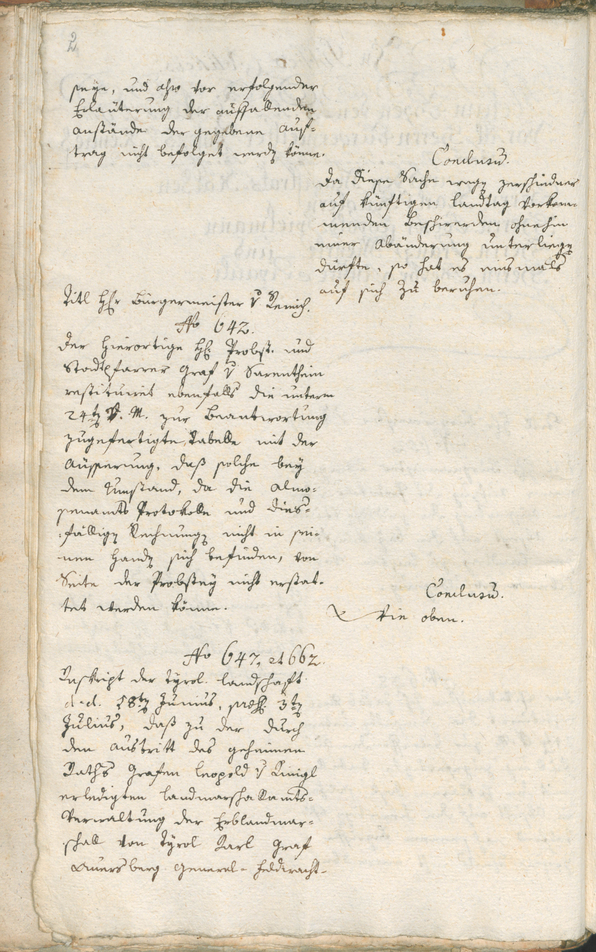 2
seye, und also vor erfolgender
Erläuterung der auffallenden
Anstände der gegebene Auf-
trag nicht befolget werdẽ könne.
Conclusũ.
Da diese Sache wegẽ verschiedner
auf künftigen Landtag vorkom-
menden Beschwerden ohnehin
einer Abänderung unterliegẽ
dürfte, so hat es einsmals
auf sich zu beruhen.
Titl Hr Bürgermeister v
No 642.
Der hierortige H: Probst und
Stadtpfarrer Graf v Sarenthein
restituirt ebenfalls die unterm
24tẽ v. M. zur Beantwortung
zugefertigte Tabelle mit der
Äusserung, daß solche bey
dem Umstand, da die Almo-
senamts Protokolle und dies-
fälligẽ Rechnungẽ nicht in sei-
nen Handẽ sich befinden, von
Seite der Probstey nicht erstat-
tet werden könne.
Conclusũ.
Wie oben.
No 647. et 662.
Reskript der tyrol. Landschaft
d.d. 18tẽ Junius, 3tẽ
Julius, daß zu der durch
den Austritt des geheimen
Raths Grafen Leopold v Künigl
erledigten Landmarschallamts-
Verwaltung der Erblandmar-
schall von Tyrol Karl Graf
Auersberg General-Feldwacht-